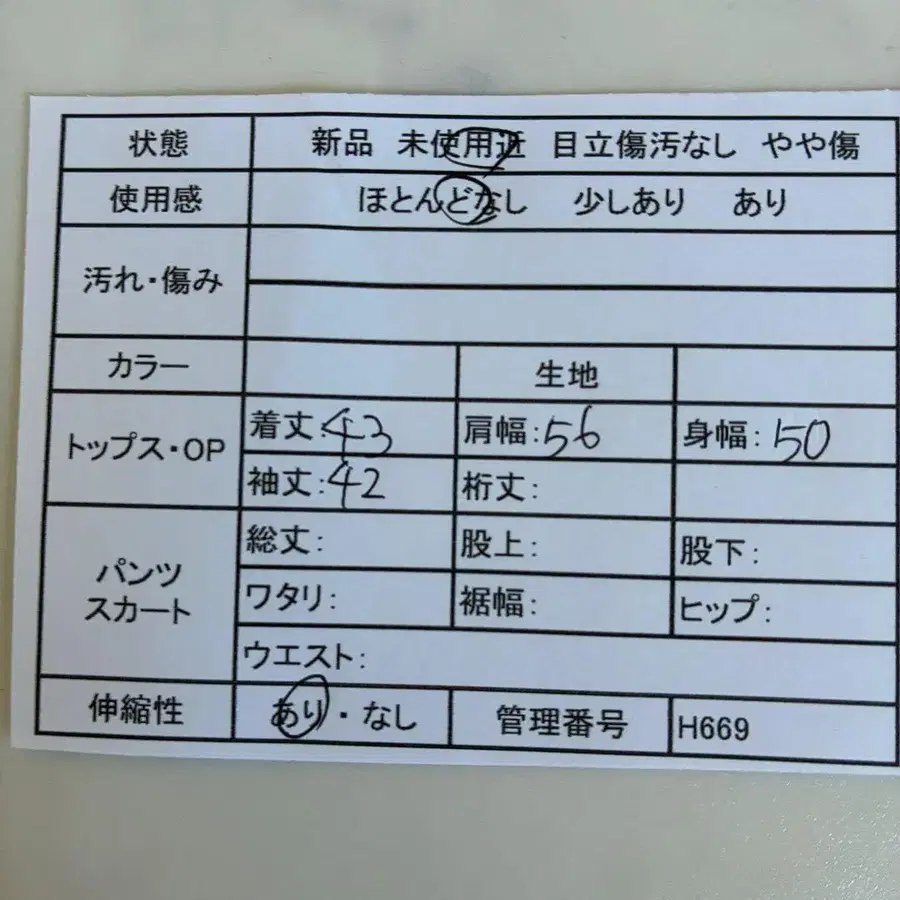 状態 新品 未使用近 目立傷汚なし やや傷
使用感 ほとんどなし 少しあり あり
汚れ・傷み
カラー 生地
トップス・OP 着丈:43 肩幅:56 身幅:50
袖丈:42 裄丈:
パンツ
スカート
総丈: 股上: 股下:
ワタリ: 裾幅: ヒップ:
ウエスト:
伸縮性 あり・なし 管理番号 H669